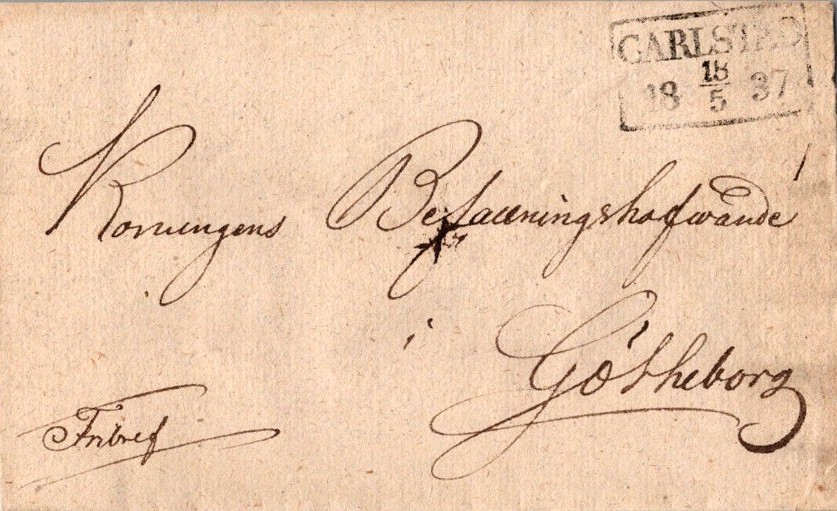 CARLSTAD
18 18/5 37
Konungens Befallningshafwande
i
Götheborg
Fribref